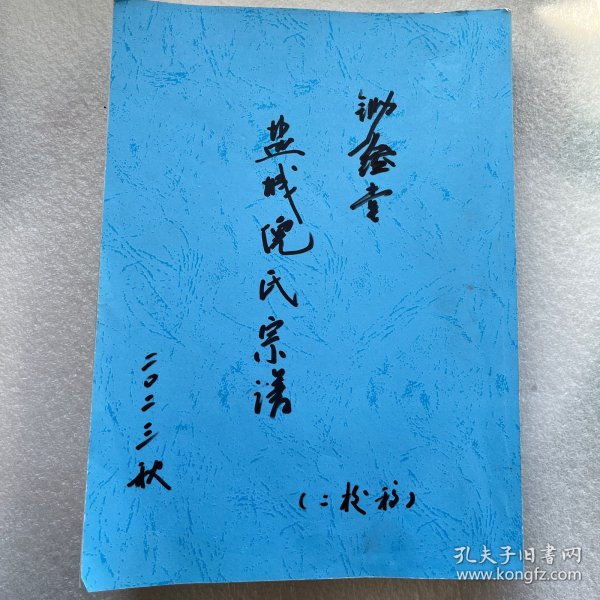 锄经堂
盐城倪氏宗谱
二〇二三秋
（二校稿）
孔夫子旧書网
www.kongfz.com